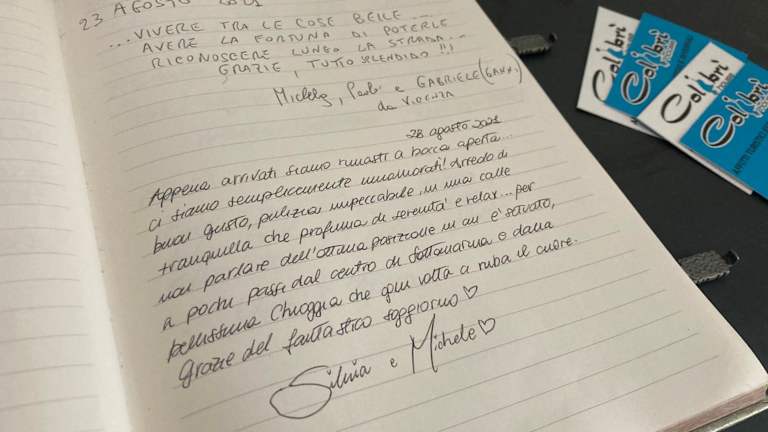 23 AGOSTO 2021
...VIVERE TRA LE COSE BELLE...
AVERE LA FORTUNA DI POTERLE
RICONOSCERE LUNGO LA STRADA...
GRAZIE, TUTTO SPLENDIDO!!!
Michela, Paolo e GABRIELE
da VICENZA
28 agosto 2021
Appena arrivati siamo rimasti a bocca aperta...
ci siamo semplicemente innamorati! Arredo di
buon gusto, pulizia impeccabile, in una calle
tranquilla che profuma di serenità e relax... per
non parlare dell'ottima posizione in cui è situato,
a pochi passi dal centro di Sottomarina e dalla
bellissima Chioggia che ogni volta ci ruba il cuore.
Grazie del fantastico soggiorno♡
Silvia e Michele♡
Colibrì
Colibrì
Colibrì
Colibrì